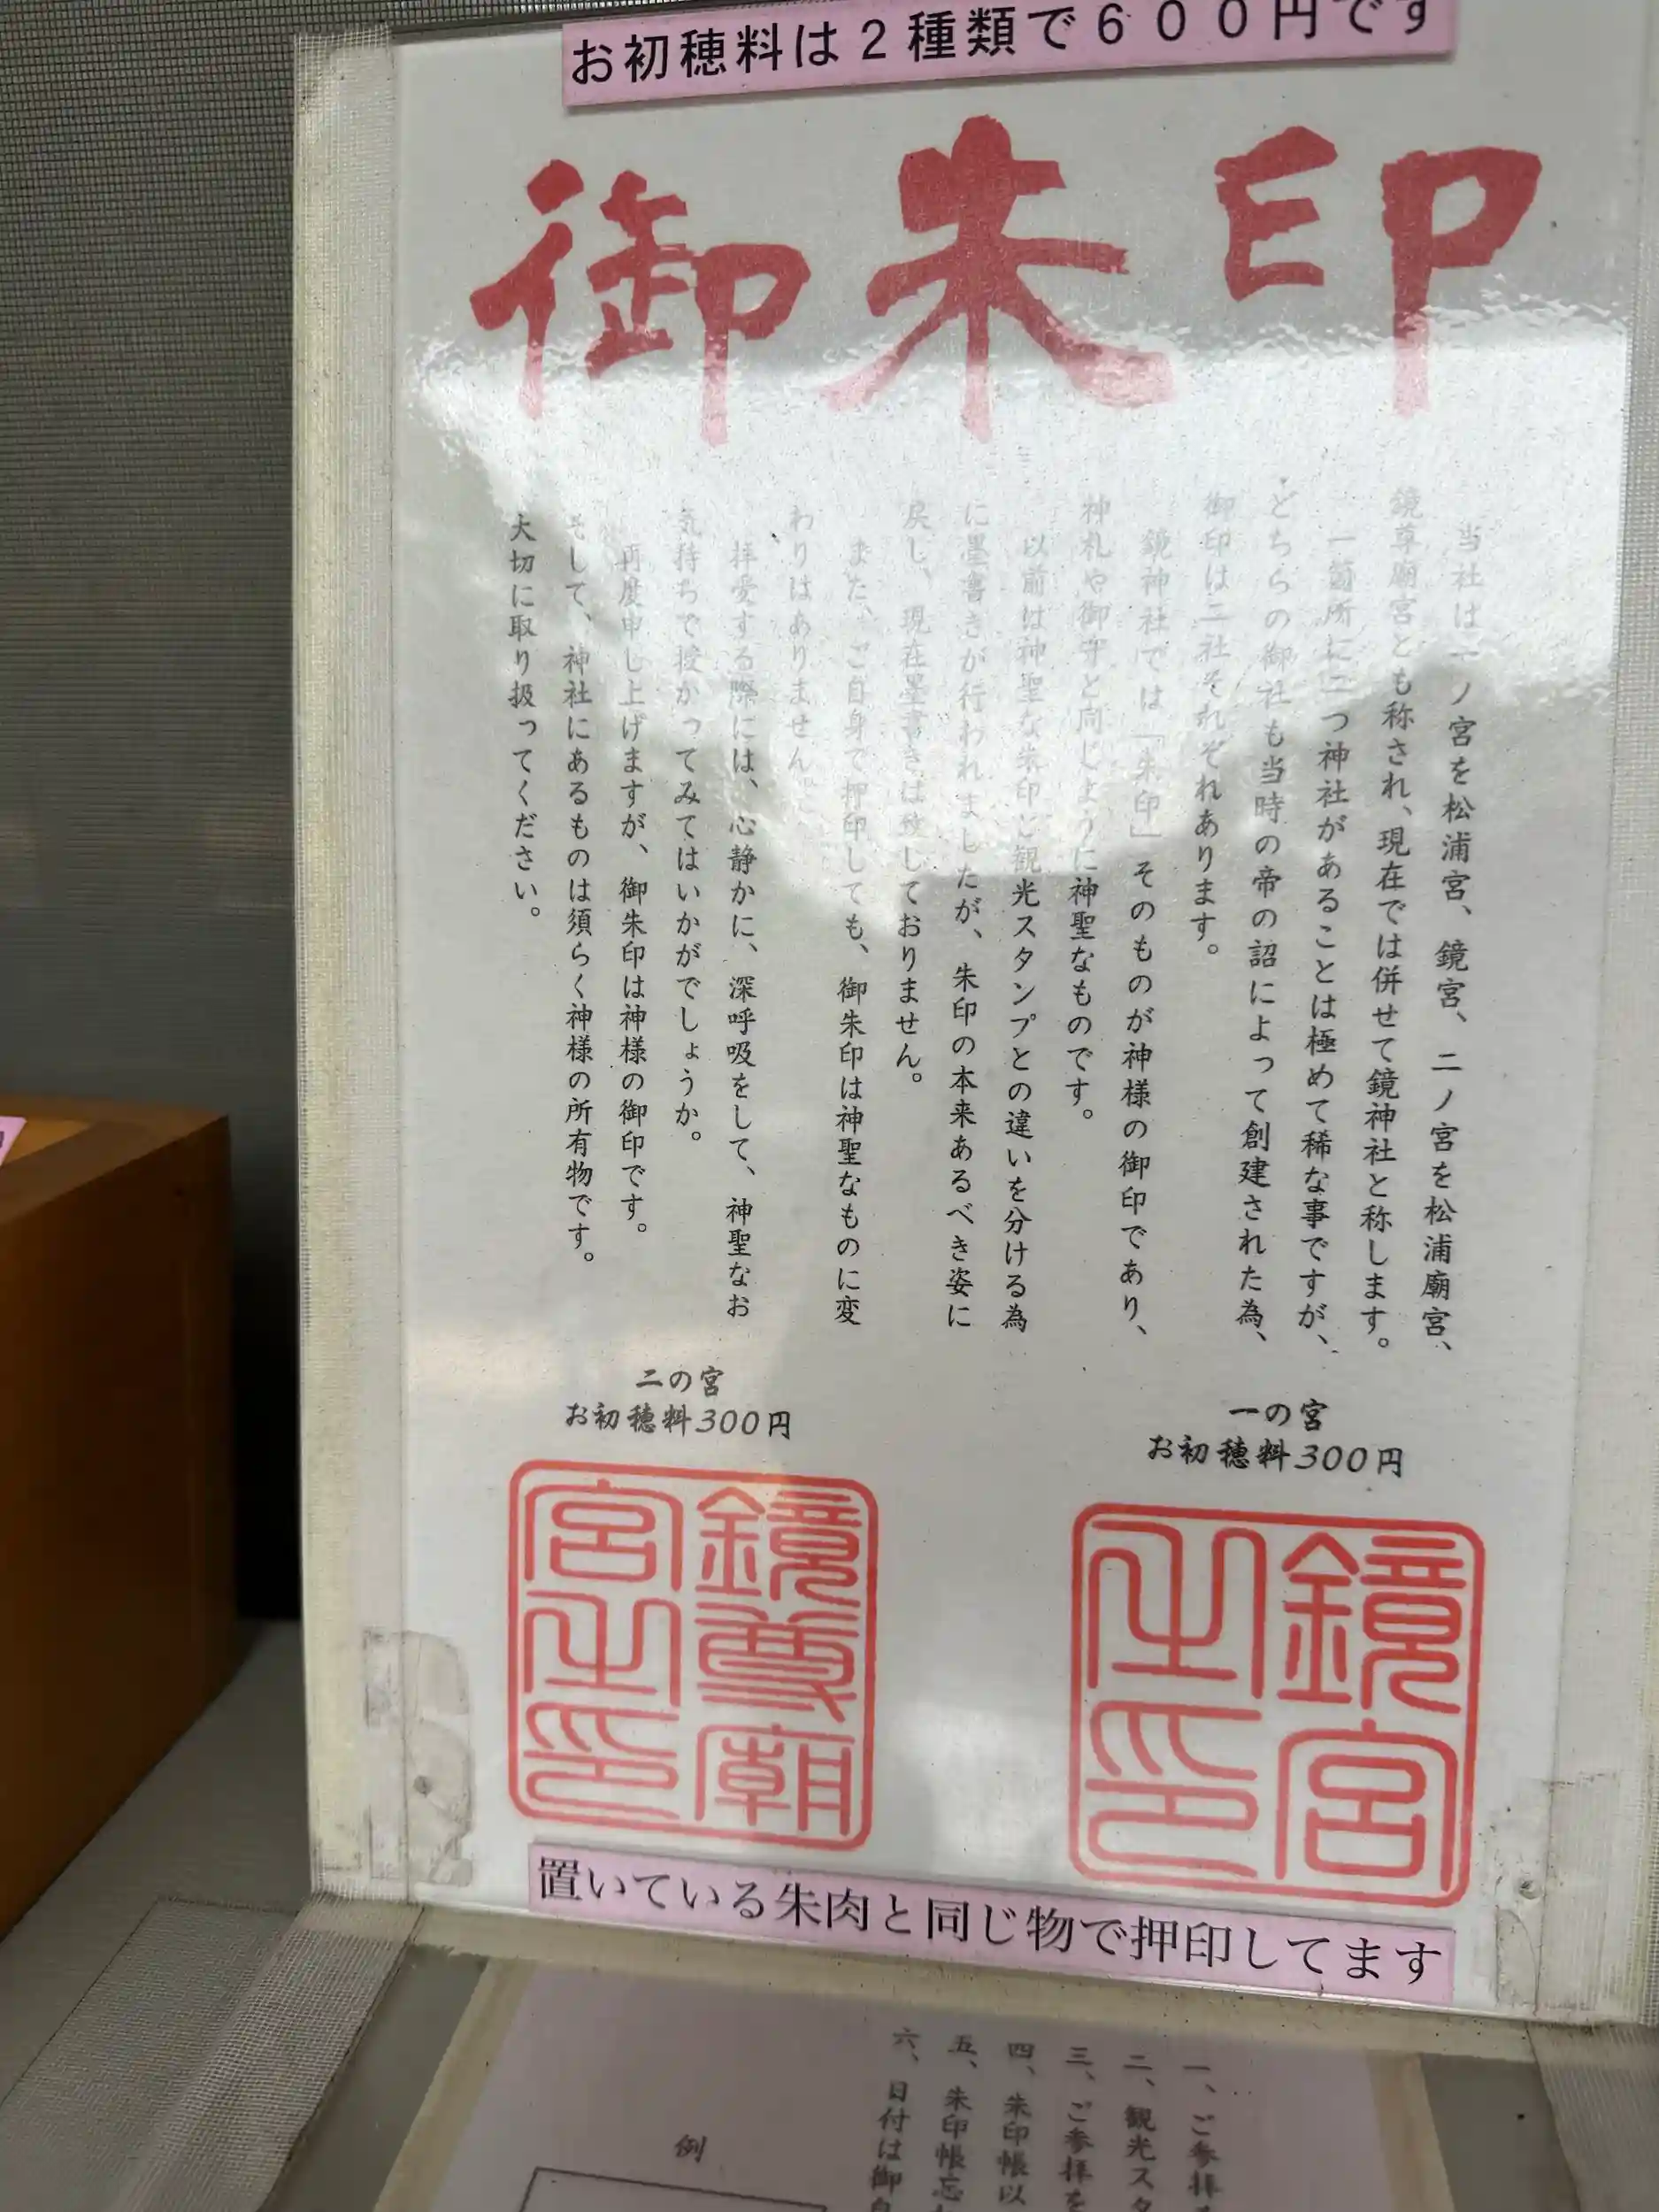 お初穂料は２種類で６００円です
御朱印
当社は一ノ宮を松浦宮、鏡宮、二ノ宮を松浦廟宮、
鏡尊廟宮とも称され、現在では併せて鏡神社と称します。
一箇所に二つ神社があることは極めて稀な事ですが、
どちらの御社も当時の帝の詔によって創建された為、
御印は二社それぞれあります。
鏡神社では「朱印」そのものが神様の御印であり、
神札や御守と同じように神聖なものです。
以前は神聖な朱印と観光スタンプとの違いを分ける為
に墨書きが行われましたが、朱印の本来あるべき姿に
戻し、現在墨書きは致しておりません。
また、ご自身で押印しても、御朱印は神聖なものに変
わりはありません。
拝受する際には、心静かに、深呼吸をして、神聖なお
気持ちで授かってみてはいかがでしょうか。
再度申し上げますが、御朱印は神様の御印です。
そして、神社にあるものは須らく神様の所有物です。
大切に取り扱ってください。
一の宮
お初穂料300円
鏡宮
之印
二の宮
お初穂料300円
鏡尊廟
宮之印
置いている朱肉と同じ物で押印してます
一、ご参拝
二、観光スタ
三、ご参拝を
四、朱印帳以
五、朱印帳忘
六、日付は御自
例